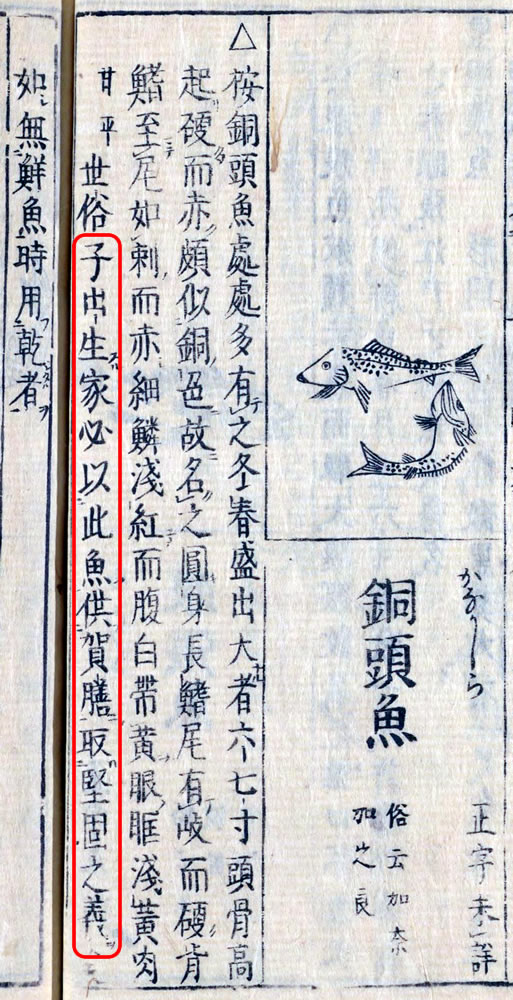 かながしら
正字未詳
銅頭魚
俗云加奈
加之良
△
桉銅頭魚處處多有之冬春盛出大者六七寸頭骨高
起硬而赤頗似銅色故名之圓身長鰭尾有岐而硬背
鰭至尾如刺而赤細鱗淺紅而腹白帶黃眼眶淺黃肉
甘平世俗子出生家必以此魚供賀膳取堅固之義
如無鮮魚時用乾者